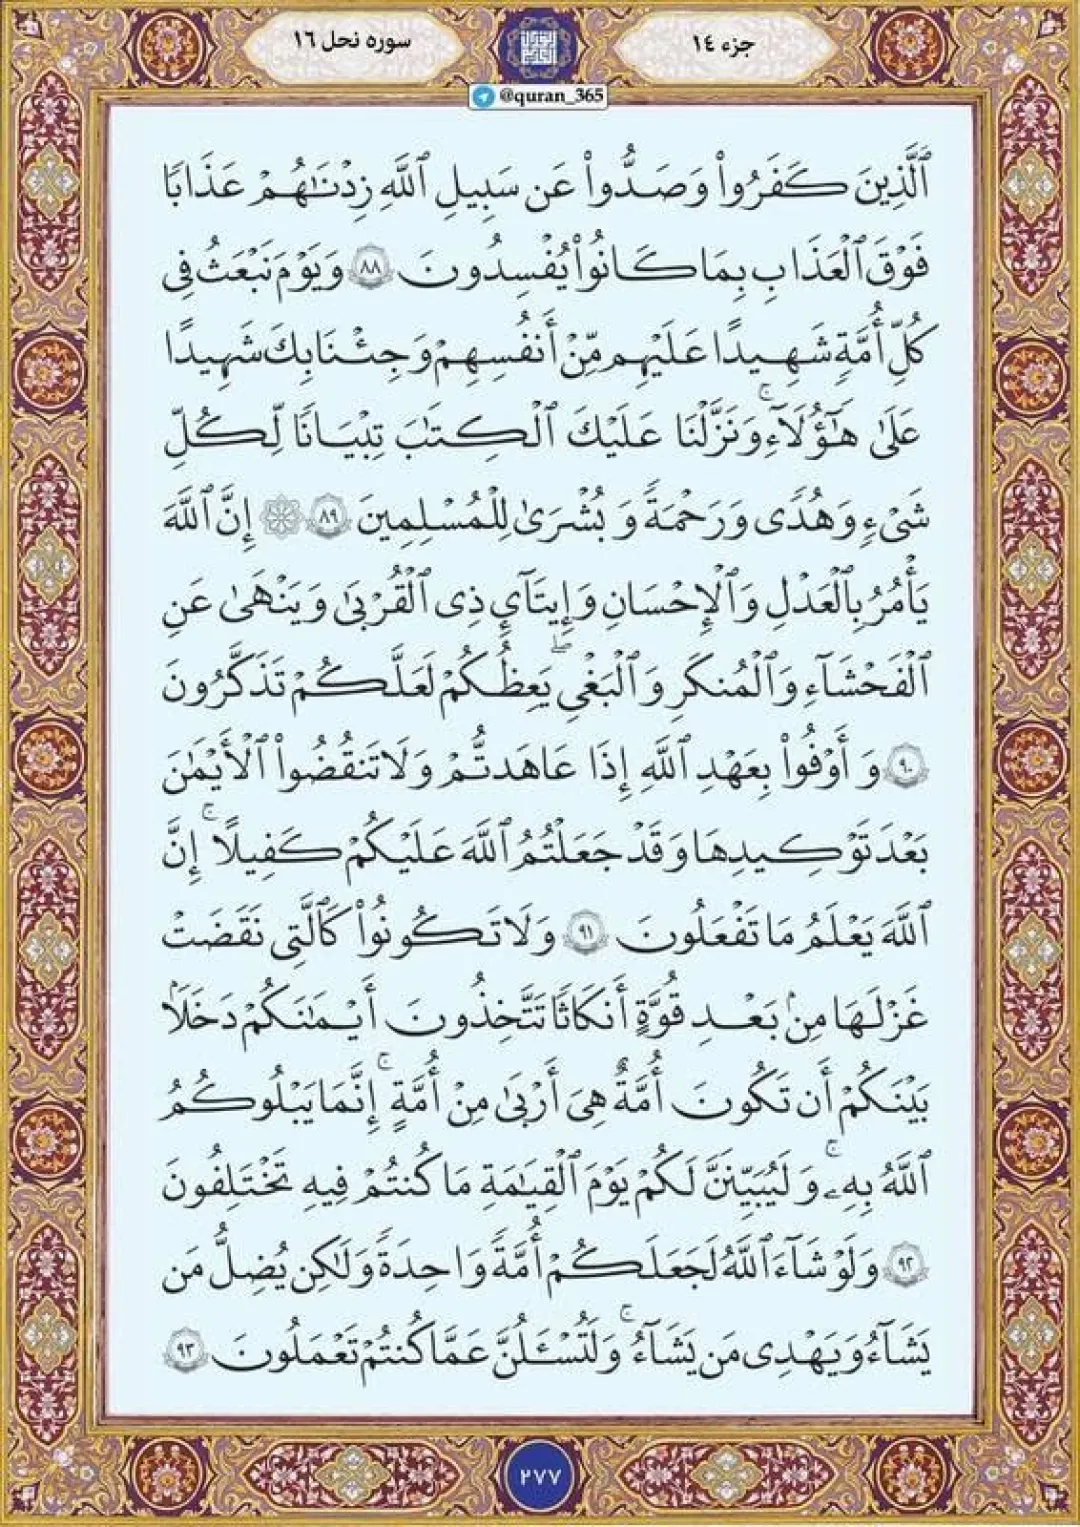 جزء ١٤
سوره نحل ١٦
@quran_365
ٱلَّذِينَ كَفَرُواْ وَصَدُّواْ عَن سَبِيلِ ٱللَّهِ زِدْنَٰهُمْ عَذَابًا
فَوْقَ ٱلْعَذَابِ بِمَا كَانُواْ يُفْسِدُونَ ٨٨ وَيَوْمَ نَبْعَثُ فِى
كُلِّ أُمَّةٍ شَهِيدًا عَلَيْهِم مِّنْ أَنفُسِهِمْ وَجِئْنَا بِكَ شَهِيدًا
عَلَىٰ هَٰٓؤُلَآءِ ۚ وَنَزَّلْنَا عَلَيْكَ ٱلْكِتَٰبَ تِبْيَانًا لِّكُلِّ
شَىْءٍ وَهُدًى وَرَحْمَةً وَبُشْرَىٰ لِلْمُسْلِمِينَ ٨٩ ۞ إِنَّ ٱللَّهَ
يَأْمُرُ بِٱلْعَدْلِ وَٱلْإِحْسَانِ وَإِيتَآئِ ذِى ٱلْقُرْبَىٰ وَيَنْهَىٰ عَنِ
ٱلْفَحْشَآءِ وَٱلْمُنكَرِ وَٱلْبَغْىِ ۖ يَعِظُكُمْ لَعَلَّكُمْ تَذَكَّرُونَ
٩٠ وَأَوْفُواْ بِعَهْدِ ٱللَّهِ إِذَا عَاهَدتُّمْ وَلَا تَنقُضُواْ ٱلْأَيْمَٰنَ
بَعْدَ تَوْكِيدِهَا وَقَدْ جَعَلْتُمُ ٱللَّهَ عَلَيْكُمْ كَفِيلًا ۚ إِنَّ
ٱللَّهَ يَعْلَمُ مَا تَفْعَلُونَ ٩١ وَلَا تَكُونُواْ كَٱلَّتِى نَقَضَتْ
غَزْلَهَا مِنۢ بَعْدِ قُوَّةٍ أَنكَاثًا تَتَّخِذُونَ أَيْمَٰنَكُمْ دَخَلًۢا
بَيْنَكُمْ أَن تَكُونَ أُمَّةٌ هِىَ أَرْبَىٰ مِنْ أُمَّةٍ ۚ إِنَّمَا يَبْلُوكُمُ
ٱللَّهُ بِهِۦ ۚ وَلَيُبَيِّنَنَّ لَكُمْ يَوْمَ ٱلْقِيَٰمَةِ مَا كُنتُمْ فِيهِ تَخْتَلِفُونَ
٩٢ وَلَوْ شَآءَ ٱللَّهُ لَجَعَلَكُمْ أُمَّةً وَٰحِدَةً وَلَٰكِن يُضِلُّ مَن
يَشَآءُ وَيَهْدِى مَن يَشَآءُ ۚ وَلَتُسْـَٔلُنَّ عَمَّا كُنتُمْ تَعْمَلُونَ ٩٣
٢٧٧